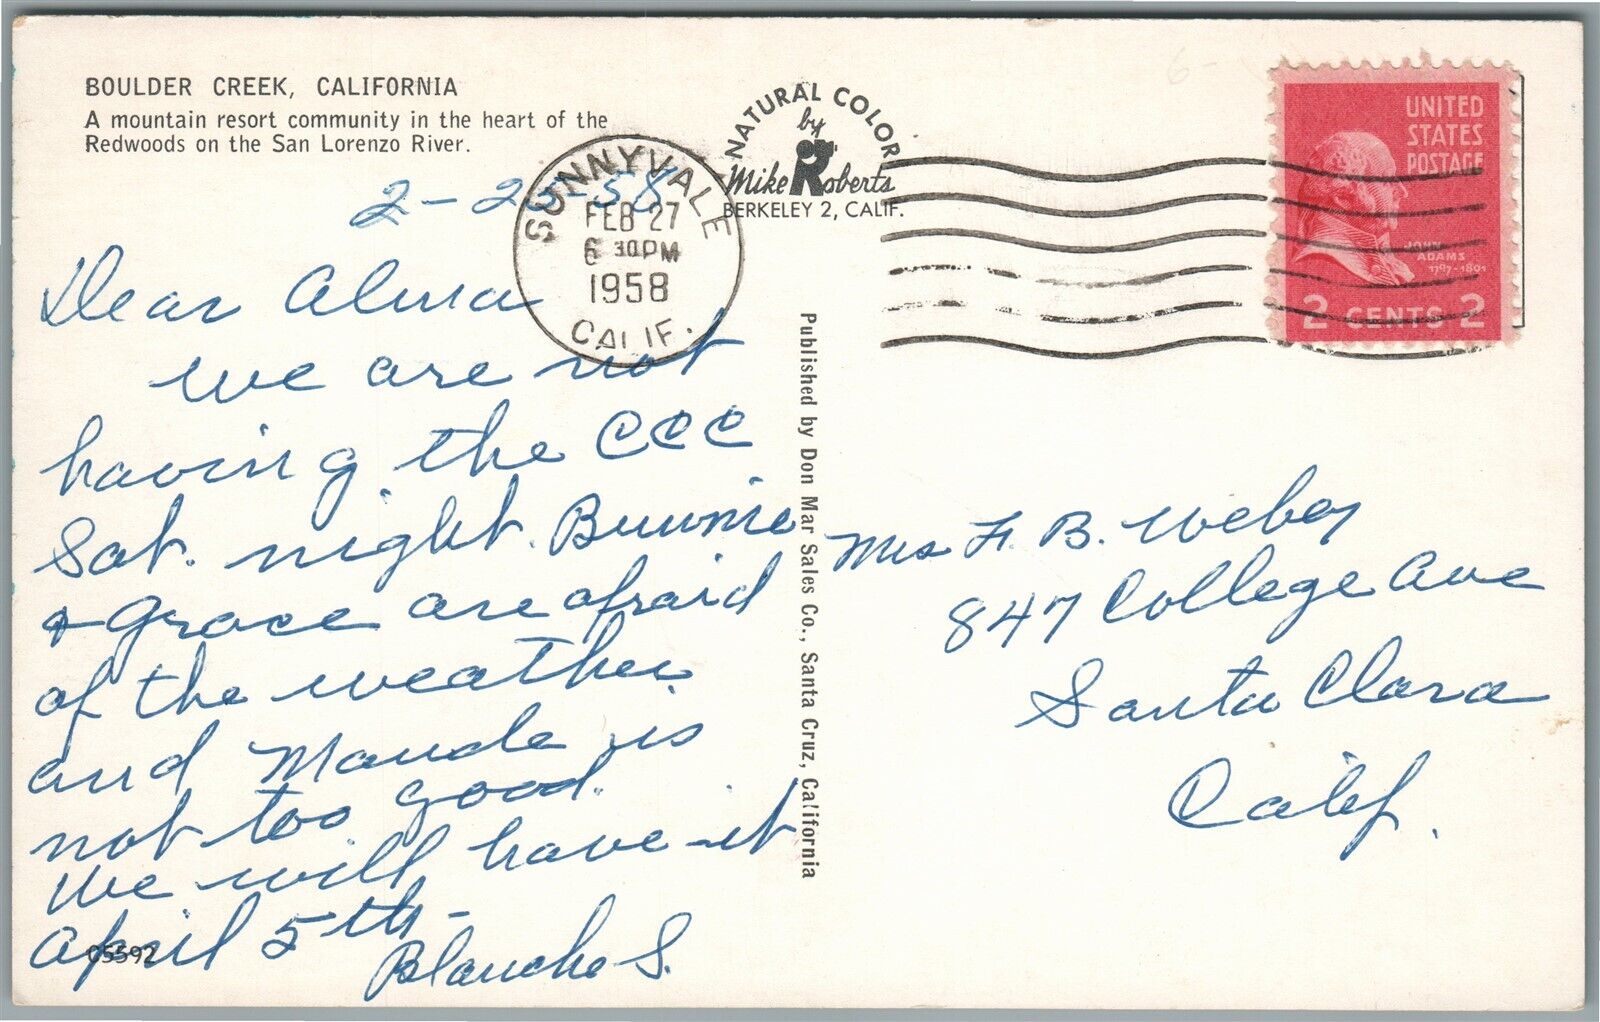 BOULDER CREEK, CALIFORNIA
A mountain resort community in the heart of the
Redwoods on the San Lorenzo River.
NATURAL COLOR
by
Mike Roberts
BERKELEY 2, CALIF.
SUNNYVALE
FEB 27
6 30PM
1958
CALIF.
UNITED
STATES
POSTAGE
JOHN
ADAMS
1797-1801
2 CENTS 2
2-2 -58
Dear Alma
we are not
having the CCC
Sat. night. Bunnie
& Grace are afraid
of the weather
and Maude is
not too good.
We will have it
April 5th-
Blanche S.
C5592
Published by Don Mar Sales Co., Santa Cruz, California
Mrs F. B. Weber
847 College Ave
Santa Clara
Calif.